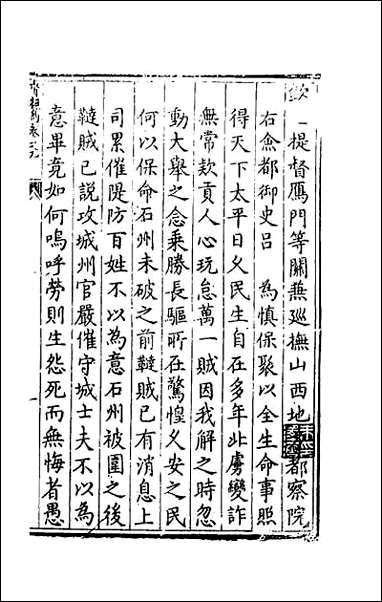 提督鴈門等關兼廵撫山西地都察院
右僉都御史吕　為慎保聚以全生命事照
得天下太平日乆民生自在多年北虜變詐
無常欵貢人心玩怠萬一賊因我解之時忽
動大舉之念乗勝長驅所在驚惶乂安之民
何以保命石州未破之前韃賊已有消息上
司累催隄防百姓不以為意石州被圍之後
韃賊已説攻城州官嚴催守城士夫不以為
意畢竟如何嗚呼勞則生怨死而無悔者愚